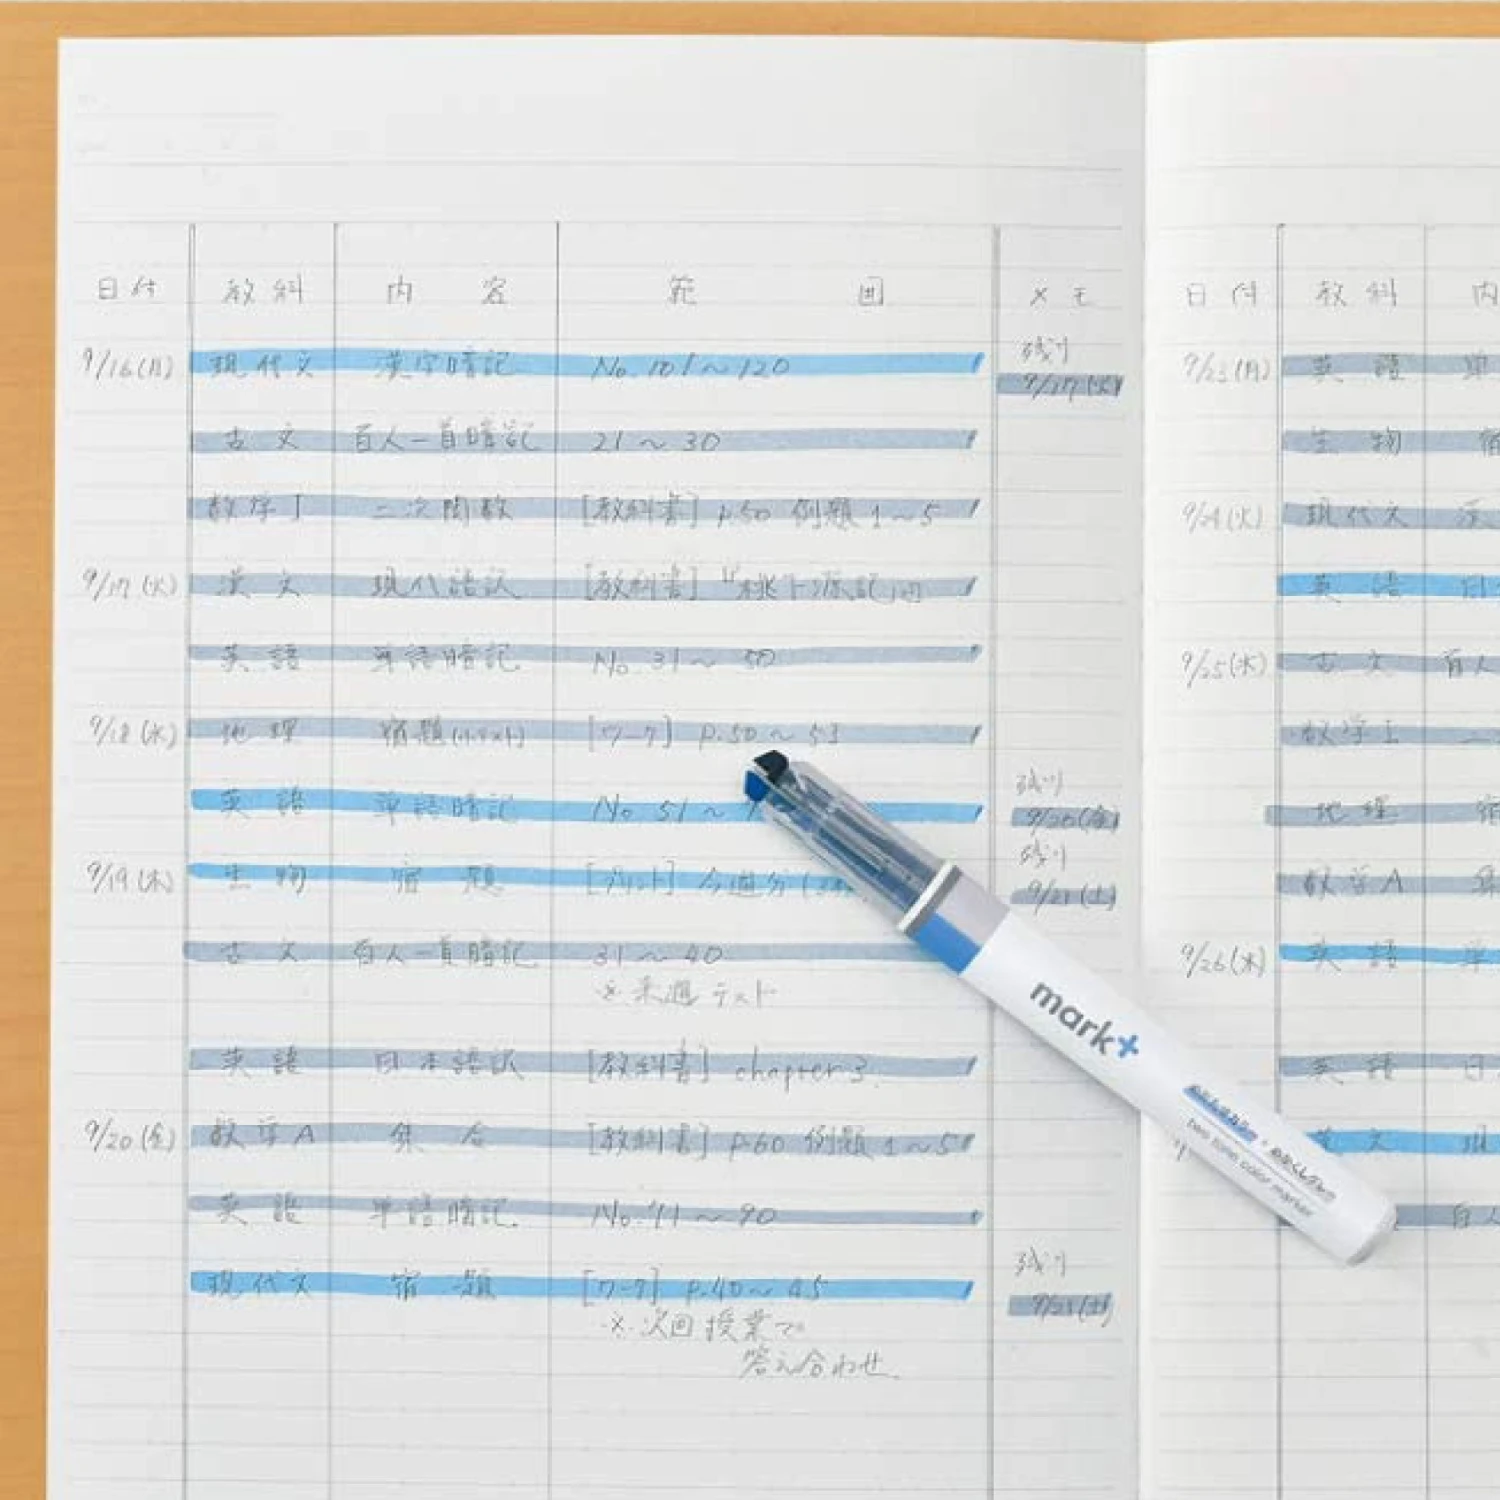 日付 教科 内容 範囲 メモ
9/16(月) 現代文 漢字暗記 No. 101～120 残り
9/17(火)
古文 百人一首暗記 21～30
数学I 二次関数 [教科書] p.50 例題 1～5
9/17(火) 漢文 現代語訳 [教科書]『桃下源記』
英語 単語暗記 No. 31～50
9/18(水) 地理 宿題(小テスト) [ワーク] p.50～53
残り
英語 単語暗記 No. 51～ 9/20(金)
残り
9/19(木) 生物 宿題 [プリント] 今週分 9/21(土)
古文 百人一首暗記 31～40
※来週テスト
英語 日本語訳 [教科書] chapter 3.
9/20(金) 数学A 集合 [教科書] p.60 例題 1～5
英語 単語暗記. No. 71～90
残り
現代文 宿題 [ワーク] p.40～45 9/21(土)
※次回授業で
答え合わせ.
日付 教科 内
9/23(月) 英語 単
生物 宿
9/24(火) 現代文
英語 日
9/25(水) 古文 百人
数学I
地理 宿
数学A 集
9/26(木) 英語 単
英語 日
文 現
百人
mark+
two tone color marker